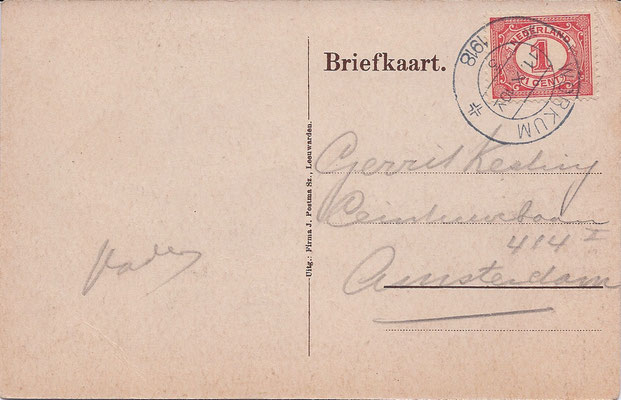 Briefkaart.
NEDERLAND
1
1 CENT
1918
Uitg.: Firma J. Postma Sz., Leeuwarden.
Gerrit
Ceintuurbaan
414 I
Amsterdam
Vader